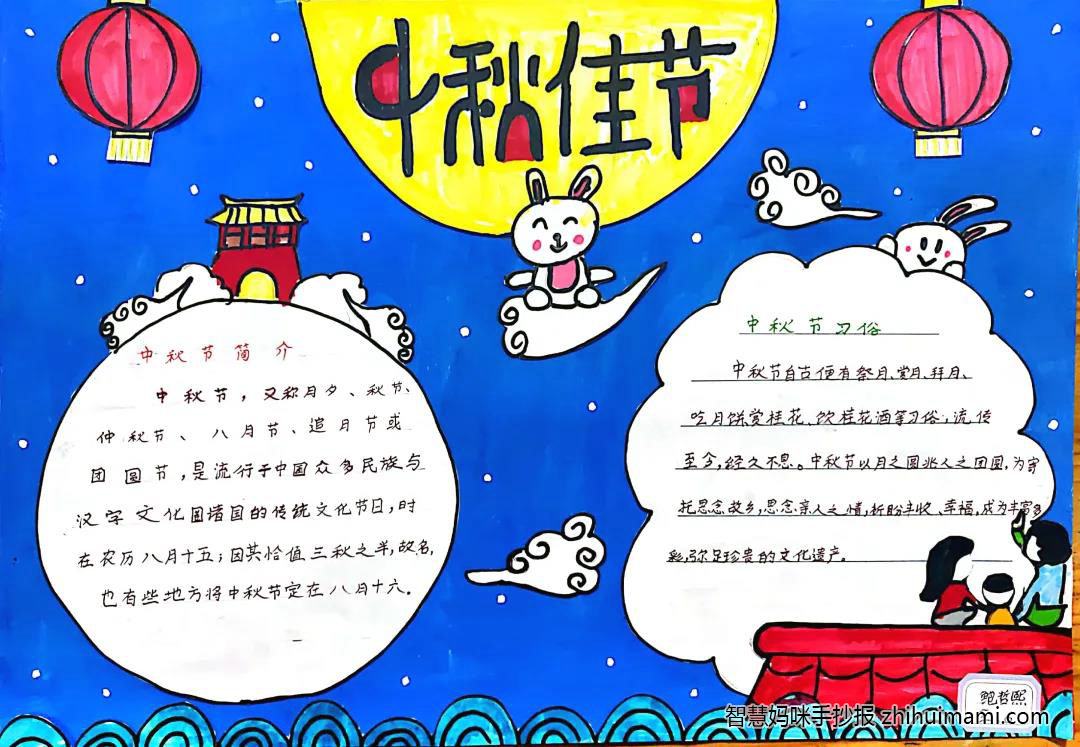 中秋佳节
中秋节简介
中秋节，又称月夕、秋节、
仲秋节、八月节、追月节或
团圆节，是流行于中国众多民族与
汉字文化圈诸国的传统文化节日，时
在农历八月十五；因其恰值三秋之半，故名，
也有些地方将中秋节定在八月十六。
中秋节习俗
中秋节自古便有祭月、赏月、拜月、
吃月饼赏桂花、饮桂花酒等习俗，流传
至今，经久不息。中秋节以月之圆兆人之团圆，为寄
托思念故乡，思念亲人之情，祈盼丰收、幸福，成为丰富多
彩，弥足珍贵的文化遗产。
鲍哲熙
智慧妈咪手抄报 zhihuimami.com